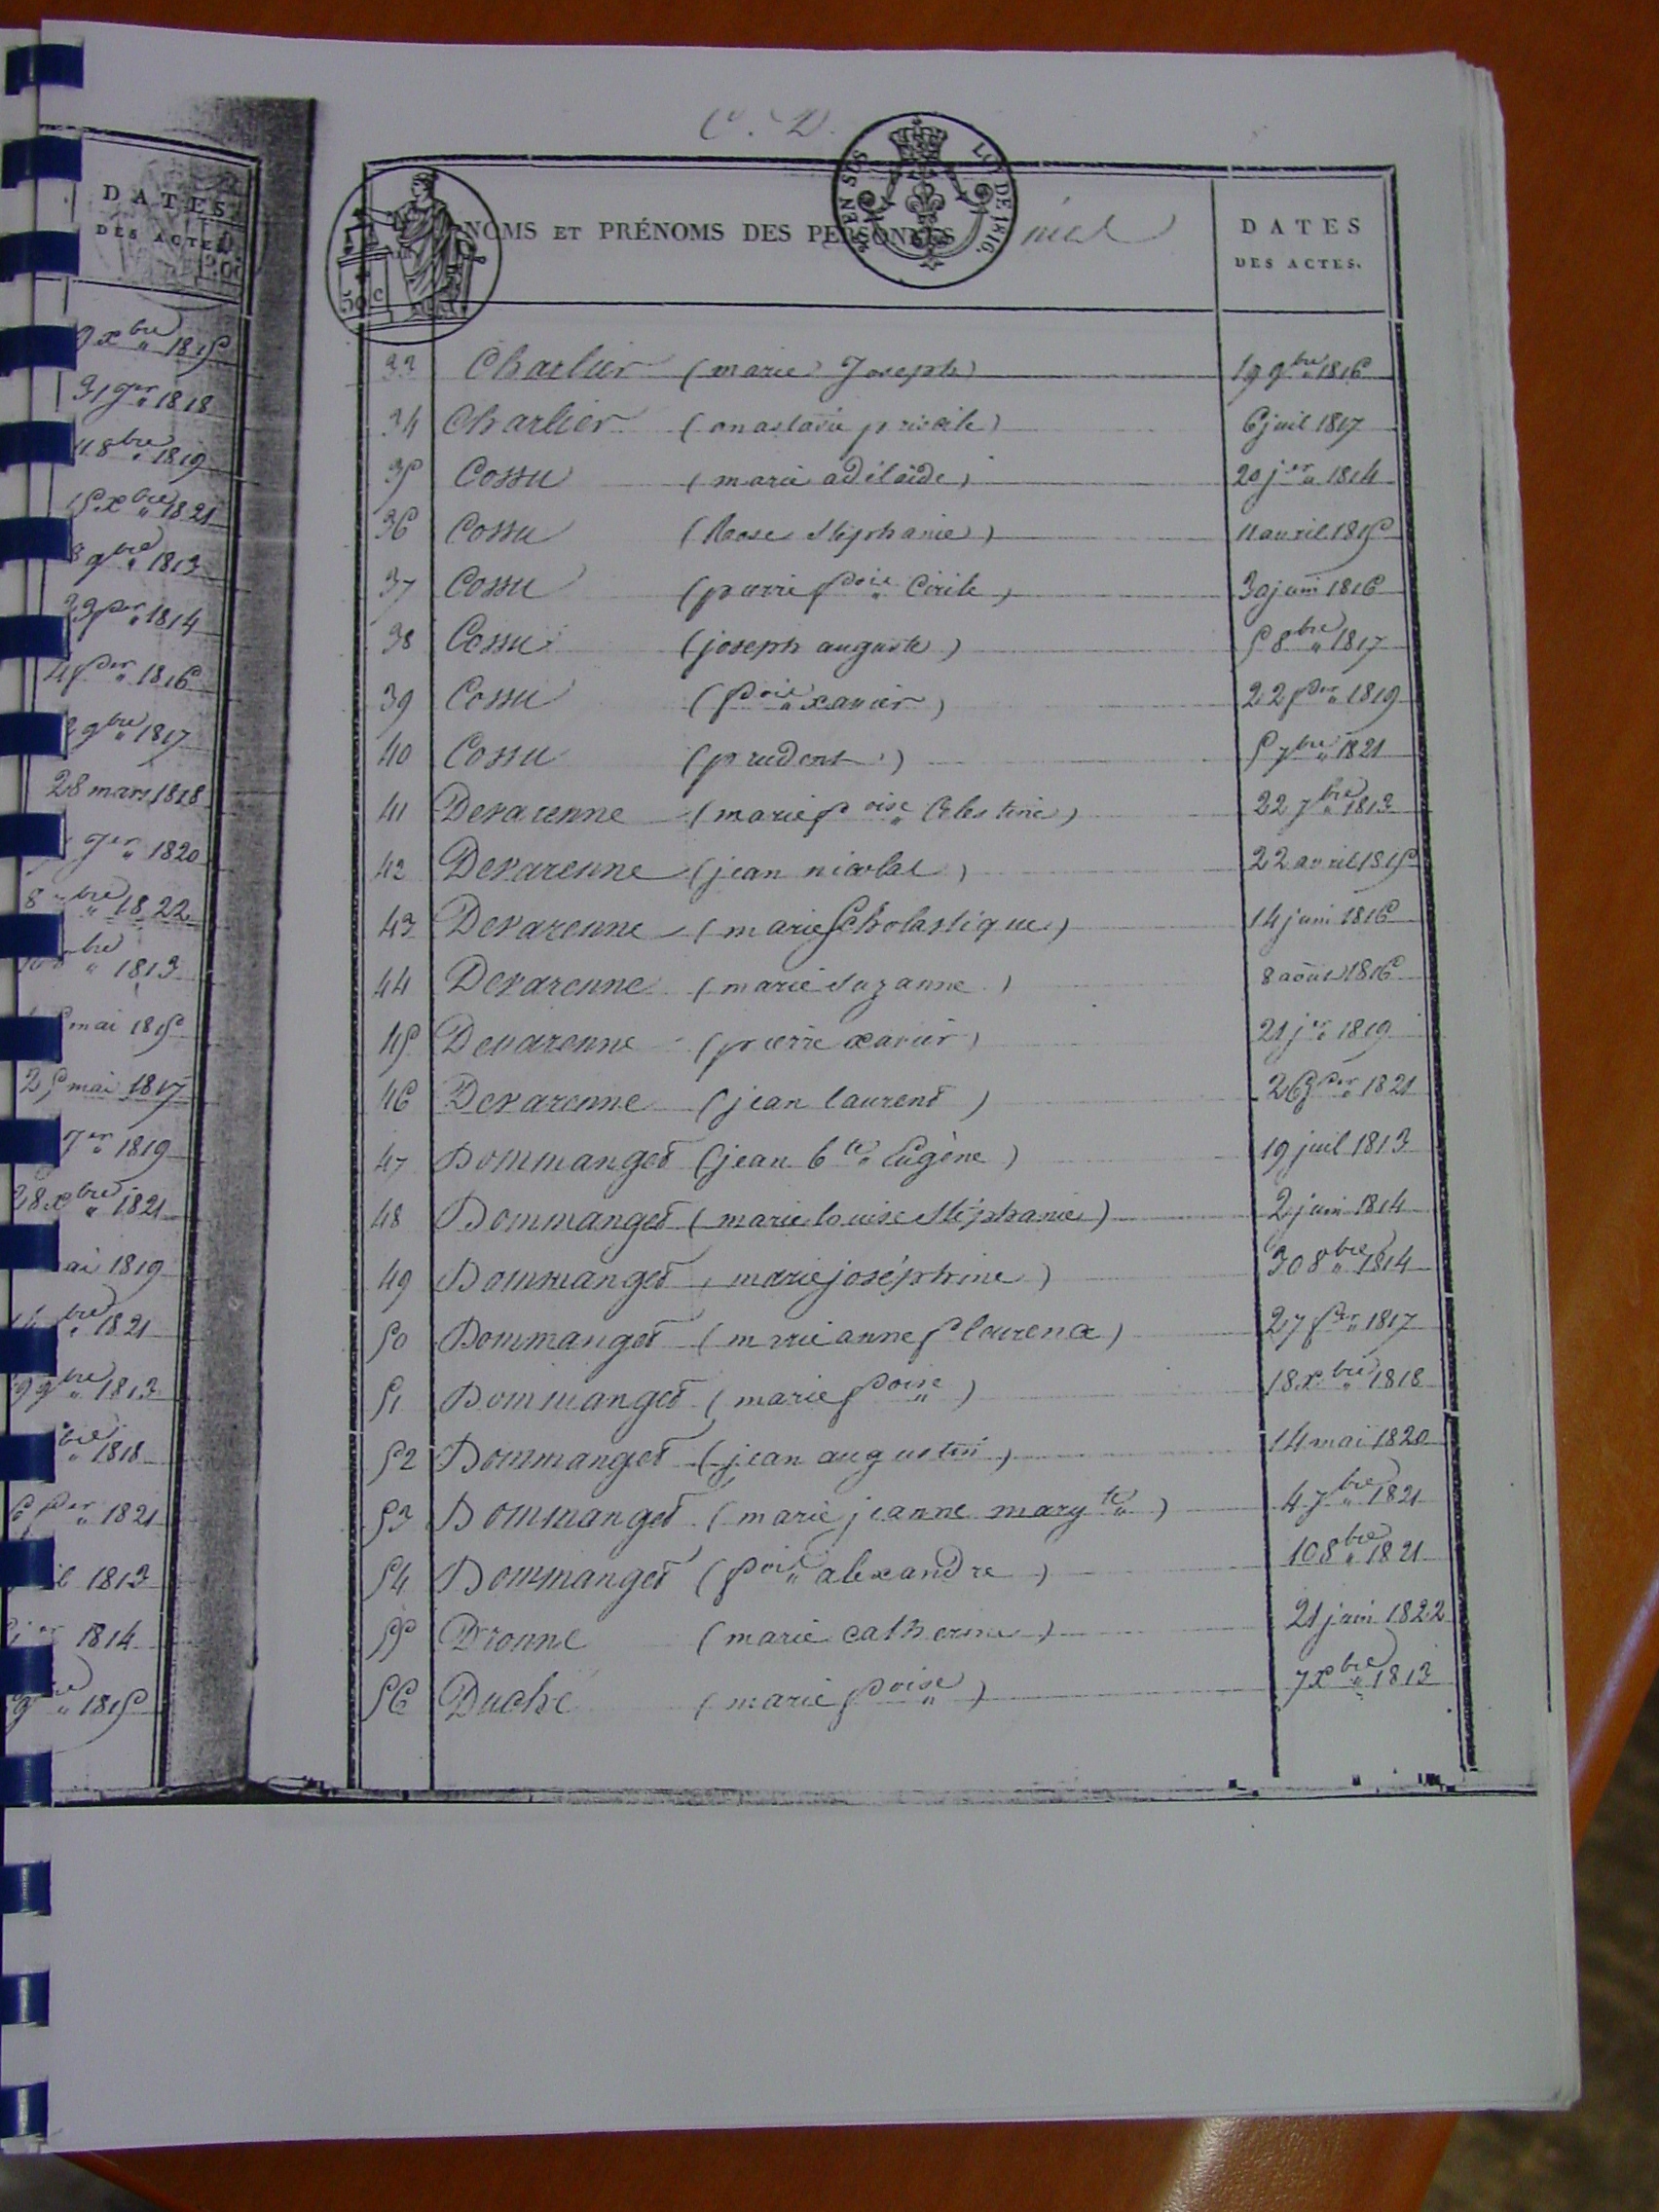 C. D.
DATES
DES ACTES
9 xbre 1815
31 jer 1818
11 8bre 1819
15 xbre 1821
8 9bre 1813
23 fer 1814
4 fer 1816
9bre 1817
28 mars 1818
jer 1820
8 bre 1822
bre 1813
mai 1815
25 mai 1817
jer 1819
28 xbre 1821
ai 1819
bre 1821
9bre 1813
bre 1818
6 fer 1821
il 1813
1814
1815
NOMS ET PRÉNOMS DES PERSONNES
EN SUS
LOI DE 1816.
50 C
DATES
DES ACTES.
33 Charlier (marie Joseph) 19 9bre 1816
34 Charlier (anastasie priscile) 6 juil 1817
35 Cossu (marie adélaïde) 20 jer 1814
36 Cossu (Rose Stéphanie) 11 avril 1815
37 Cossu (pierre fois Cirile) 30 juin 1816
38 Cossu (joseph auguste) 5 8bre 1817
39 Cossu (fois xavier) 22 fer 1819
40 Cossu (prudent) 5 7bre 1821
41 Devarenne (marie foise Celestine) 22 7bre 1813
42 Devarenne (jean nicolas) 22 avril 1815
43 Devarenne (marie Scholastique) 14 juin 1816
44 Devarenne (marie Suzanne) 8 août 1816
45 Devarenne (pierre xavier) 21 jer 1819
46 Devarenne (jean laurent) 26 fer 1821
47 Dommanget (jean bte Eugène) 19 juil 1813
48 Dommanget (marie louise Stéphanie) 2 juin 1814
49 Dommanget (marie joséphine) 30 8bre 1814
50 Dommanget (marie anne florence) 27 fer 1817
51 Dommanget (marie foise) 18 xbre 1818
52 Dommanget (jean augustin) 14 mai 1820
53 Dommanget (marie jeanne margte) 4 7bre 1821
54 Dommanget (fois alexandre) 10 8bre 1821
55 Dronne (marie catherine) 21 juin 1822
56 Duché (marie foise) 7 xbre 1813